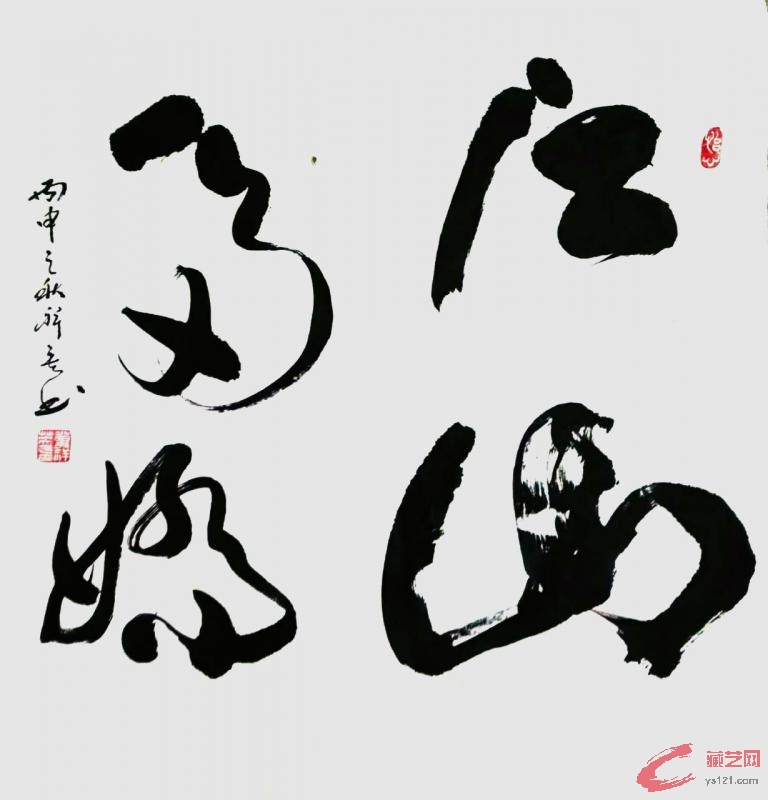 江山
多娇
丙申之秋
书
藏艺网
ys121.com